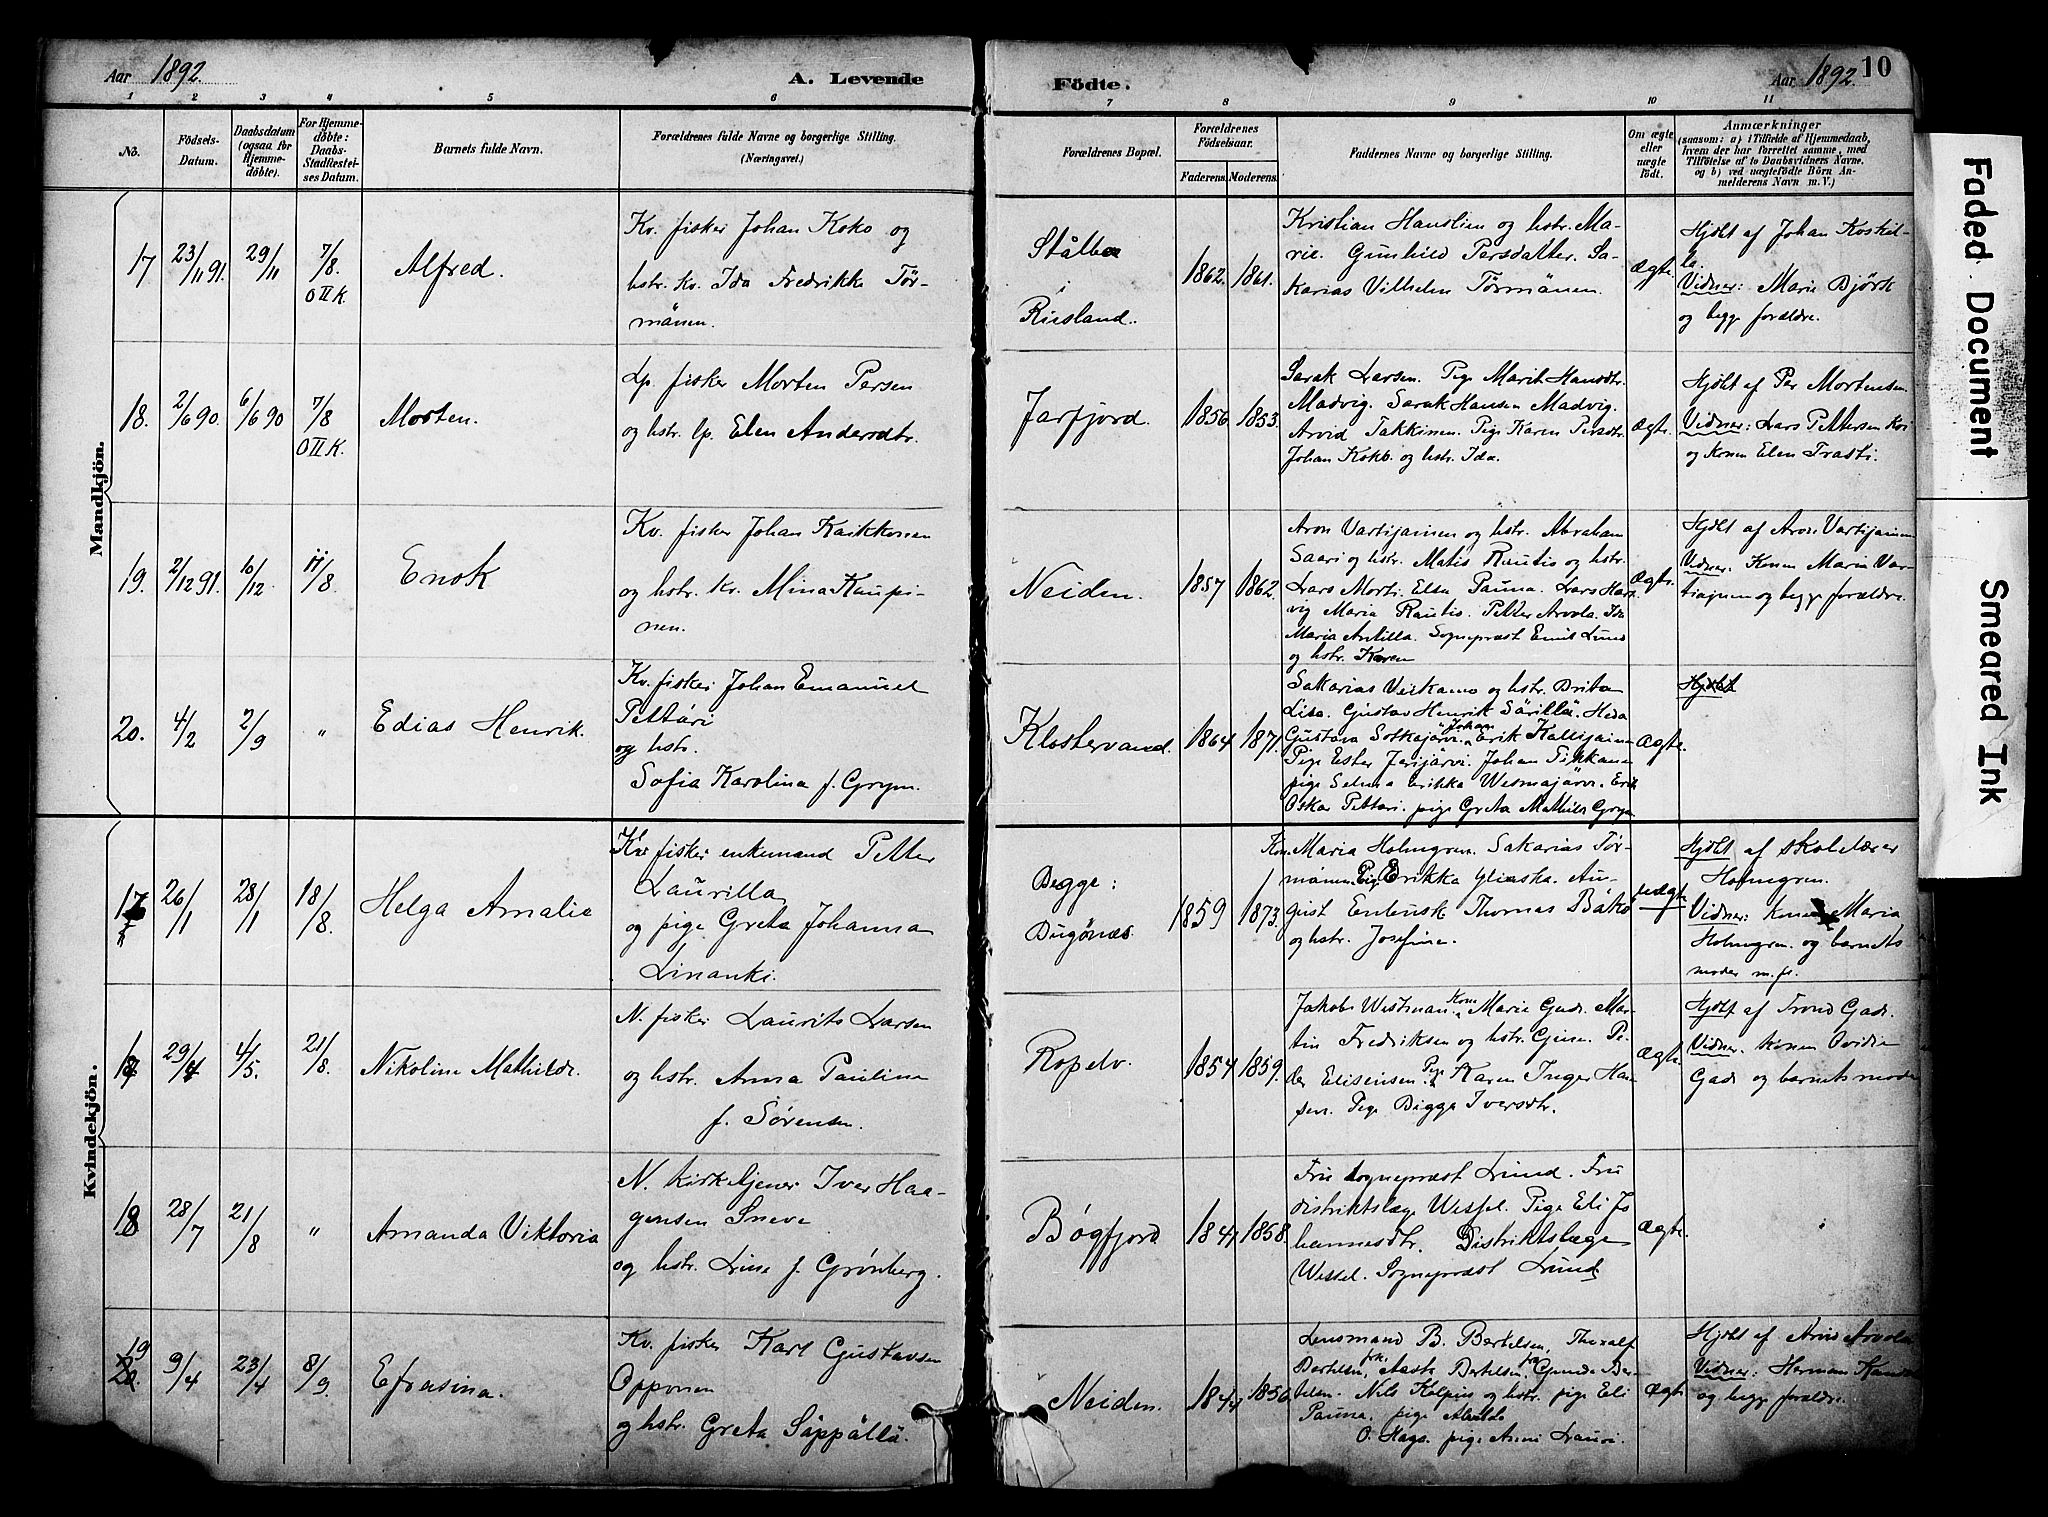 Aar 1892.
A. Levende
Födte.
Aar 1892.
10
1 2 3 4 5 6 7 8 9 10 11
No.
Födsels-
Datum.
Daabsdatum
(ogsaa for
Hjemme-
döbte).
For Hjemme-
döbte:
Daabs-
Stadfæstel-
ses Datum.
Barnets fulde Navn.
Forældrenes fulde Navne og borgerlige Stilling.
(Næringsvei.)
Forældrenes Bopæl.
Forældrenes
Födselsaar.
Faderens. Moderens.
Faddernes Navne og borgerlige Stilling.
Om ægte
eller
uægte
födt.
Anmærkninger
(saasom: a) i Tilfælde af Hjemmedaab,
hvem der har forrettet samme, med
Tilföielse af to Daabsvidners Navne,
og b) ved uægtefödte Börn An-
melderens Navn m. V.)
Mandkjön.
17
23/11 91.
29/11
7/8.
O II K.
Alfred.
Kv. fisker Johan Koko og
hstr. kv. Ida Fredrikke Tör-
mänen.
Rirsland.
1862.
1861.
Kristian Hauslin og hstr. Ma-
rie. Gunhild Persdatter. Sa-
karias Vilhelm Törmänen.
ægte
Hjdbt af Johan
Vidner: Marie Bjørk
og begge forældre.
18.
2/6 90.
6/6 90
7/8
O II K.
Morten.
Lp. fisker Morten Persen
og hstr. lp. Elen Andersdtr.
Jarfjord.
1856.
1853.
Sarak Larsen. Pige Marit Hansdtr.
Madvig. Sarak Hansen Madvig.
Arvid Takkinen. Pige Karen Persdtr.
Johan Koko og hstr. Ida.
Ægte.
Hjdbt af Per Mortensen.
Vidner: Lars Pettersen
og Konen Elen Trasti.
19.
2/12 91.
10/12
11/8.
Enok
Kv. fisker Johan Kaikkonen
og hstr. kv. Mina Kaupi-
nen.
Neiden.
1857
1862.
Aron Vartijainen og hstr. Abraham
Saari og hstr. Matis Rautio og hstr.
Lars Morti. Elsa Pauna. Lars
Maria Rautio. Petter Arvola. Ida
Maria Antilla. Sogneprest Emil Lund
og hstr. Karen
Ægte.
Hjdbt af Aron Vartijainen
Vidner: Konen Maria Var-
tiajnen og begge forældre.
20.
4/2
2/9
"
Edias Henrik.
Kv. fisker Johan Emanuel
Pettäri
og hstr.
Sofia Karolina f. Grym.
Klostervand.
1864
1871.
Sakarias Veikamo og hstr. Brita
Lisa. Gustav Henrik Särillä. Heda
Gustava Sotkajärvi. Johan Erik Kallijainen
Pige Ester Jarijärvi. Johan Tikkanen
pige Selma Erikka Wesmajärvi. Erik
Oskar Pettäri. pige Greta Mathilde Grym
Ægte.
Hjdbt
Kvindekjön.
17
26/1
28/1
18/8.
Helga Amalie
Kv. fisker enkemand Petter
Laurilla
og pige Greta Johanna
Linanki.
Begge:
Bugönæs.
1859
1873.
Kone Maria Holmgren. Sakarias Tör-
mänen. Pige Erikka Gliaska. Au-
gust Entusk Thomas Bäkö
og hstr. Josefine.
uægte
Hjdbt af skolelærer
Holmgren.
Vidner: Konen Maria
Holmgren og barnets
moder m. fl.
29/4
4/5.
21/8.
Nikoline Mathilde.
N. fisker Laurits Larsen
og hstr. Anna Pauline
f. Sörensen.
Ropelv.
1854
1859.
Jakob Westman. Kone Marie Gade. Mar-
tin Fredriksen og hstr. Gjine. Pe-
der Elisensen. Pige Karen Inger Han-
sen. Pige Bigge Iversdtr.
Ægte.
Hjdbt af Trond Gade.
Vidner: konen Ovidia
Gade og barnets moder
18
28/7
21/8
"
Amanda Viktoria
N. kirketjener Iver Haa-
gensen Sneve
og hstr. Line f. Grönberg.
Bögfjord
1858.
Fru sogneprest Lund. Fru
distriktslæge Wessel. Pige Eli Jo-
hannesdtr. Distriktslæge
Wessel. Sogneprest Lund
Ægte.
19
9/4
23/4
8/9.
Efrasina.
Kv. fisker Karl Gustavsen
Opponen
og hstr. Greta Säppällä.
Neiden.
1844
1850.
Lensmand B. Bertelsen, Thoralf
Bertelsen, frk. Aasta Bertelsen, fru Gunda Ber-
telsen. Nils Kolpus og hstr. pige Eli
Pauna. pige
O. Hags. pige Anni Lauri.
Ægte
Hjdbt af Arvid Arvola
Vidner: Herman
og begge forældre.
Faded Document
Smeared Ink